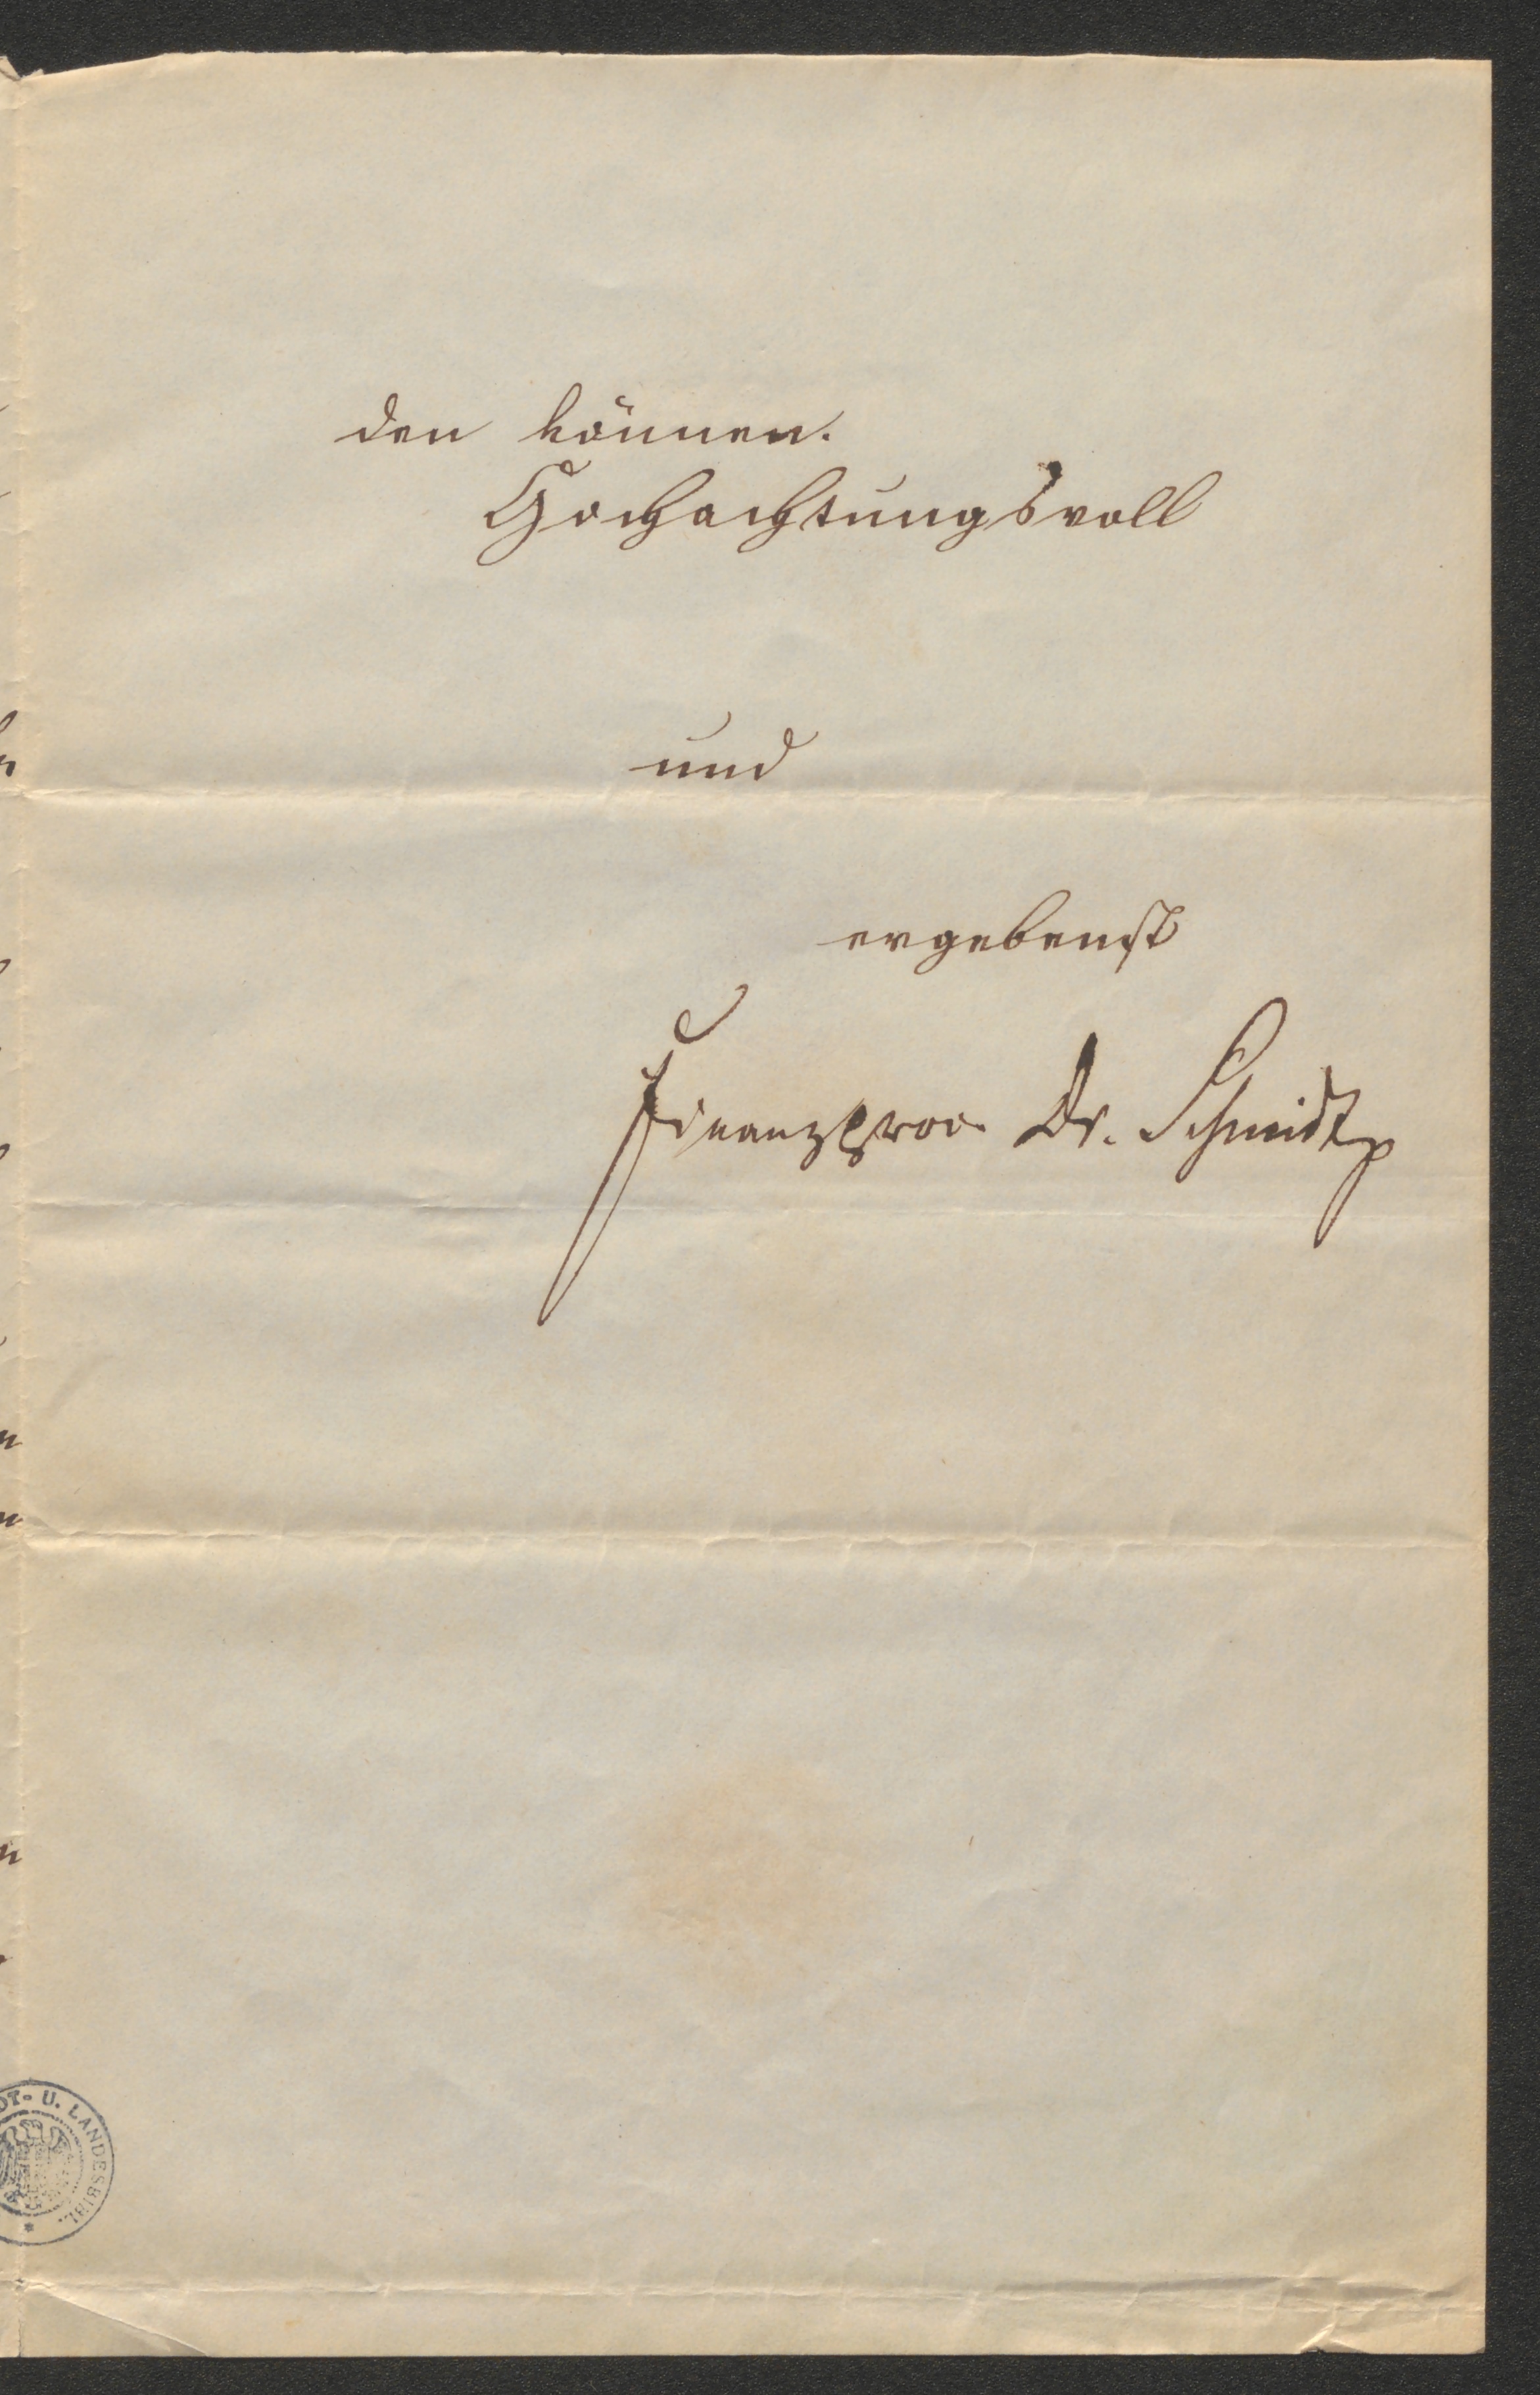 den können.
Hochachtungsvoll
und
ergebenst
Finanzproc. Dr. Schmidt
DT- U. LANDESBIBL.